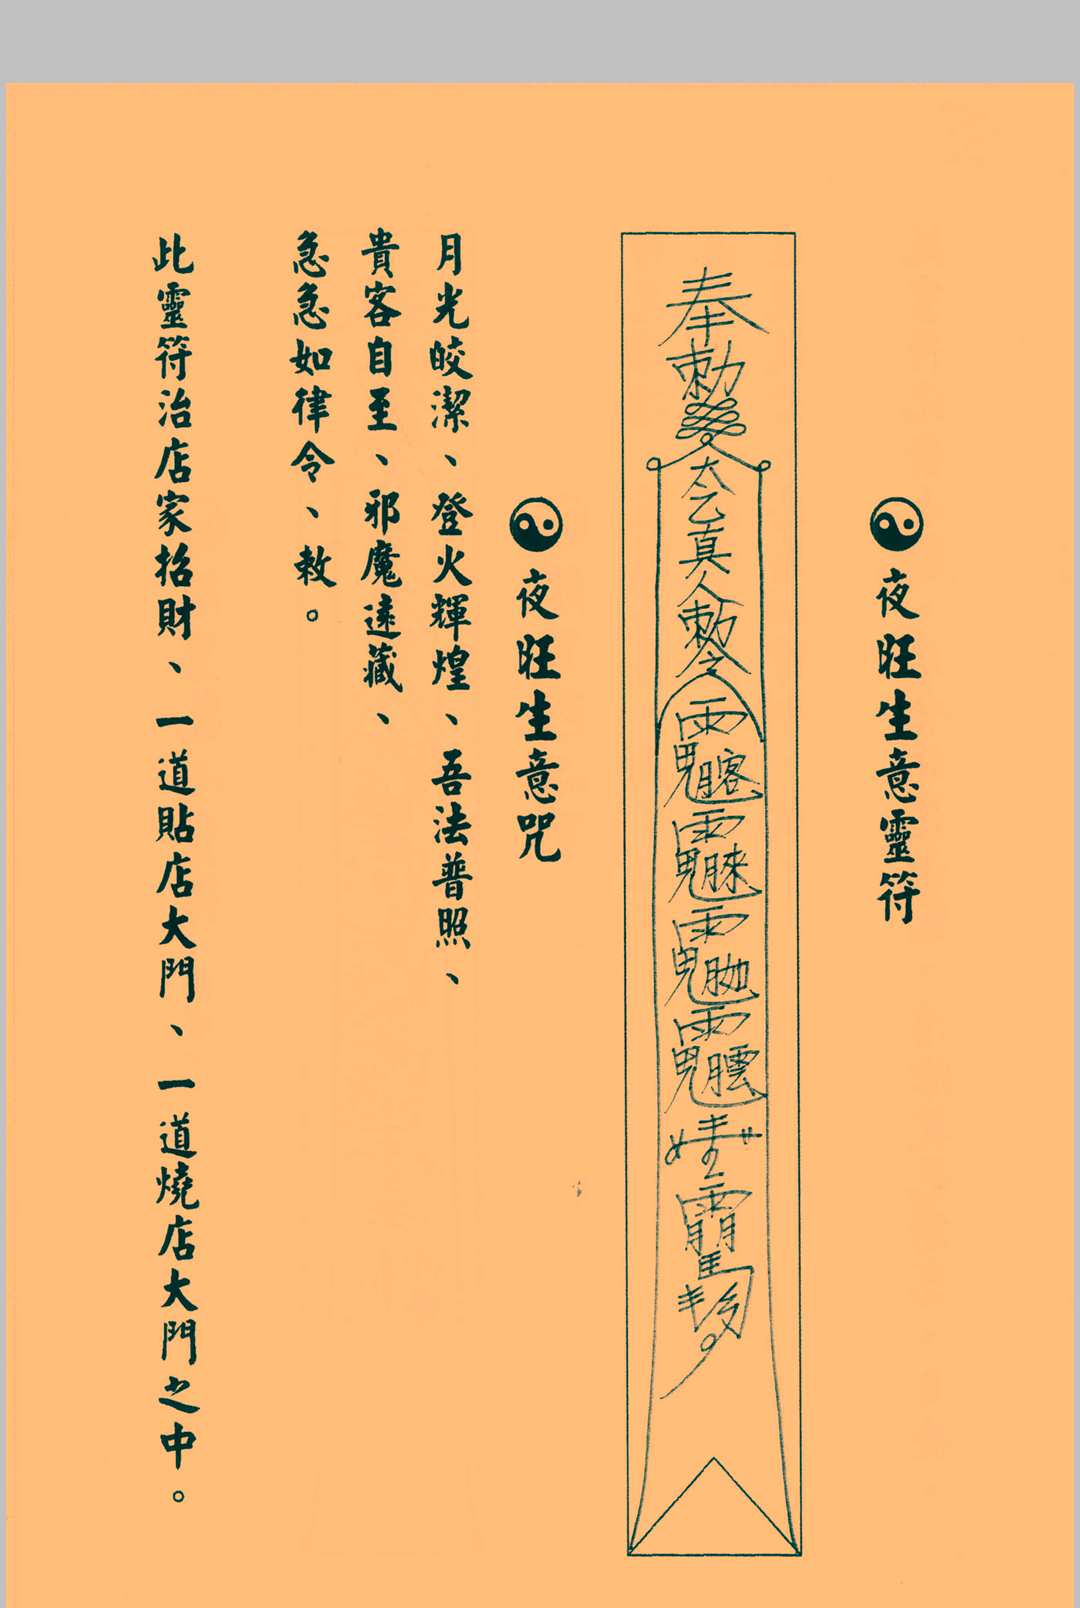 夜旺生意靈符
奉勅
太乙真人勅令
夜旺生意咒
月光皎潔、登火輝煌、吾法普照、
貴客自至、邪魔遠藏、
急急如律令、敕。
此靈符治店家招財、一道貼店大門、一道燒店大門之中。